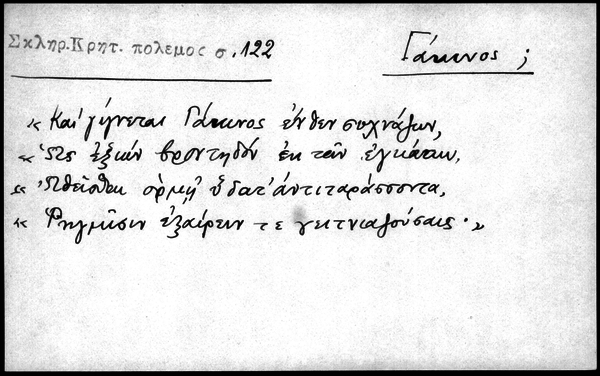 Σκληρ. Κρητ. πολεμος σ. 122
Γάκινος ;
« Καὶ γίγνεται Γάκινος ἔνθεν συχνάζων,
« Ὃς ἐξιὼν βροντηδὸν ἐκ τῶν ἐγκάτων,
« ὠθεῖσθαι ὁρμῇ ὕδατ' ἀντιταράσσοντα,
« Ῥηγμῖσιν ἐξαίρειν τε γειτνιαζούσαις. »